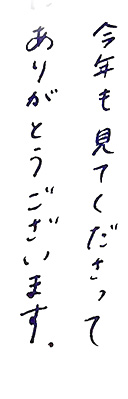 今年も見てくださって
ありがとうございます.